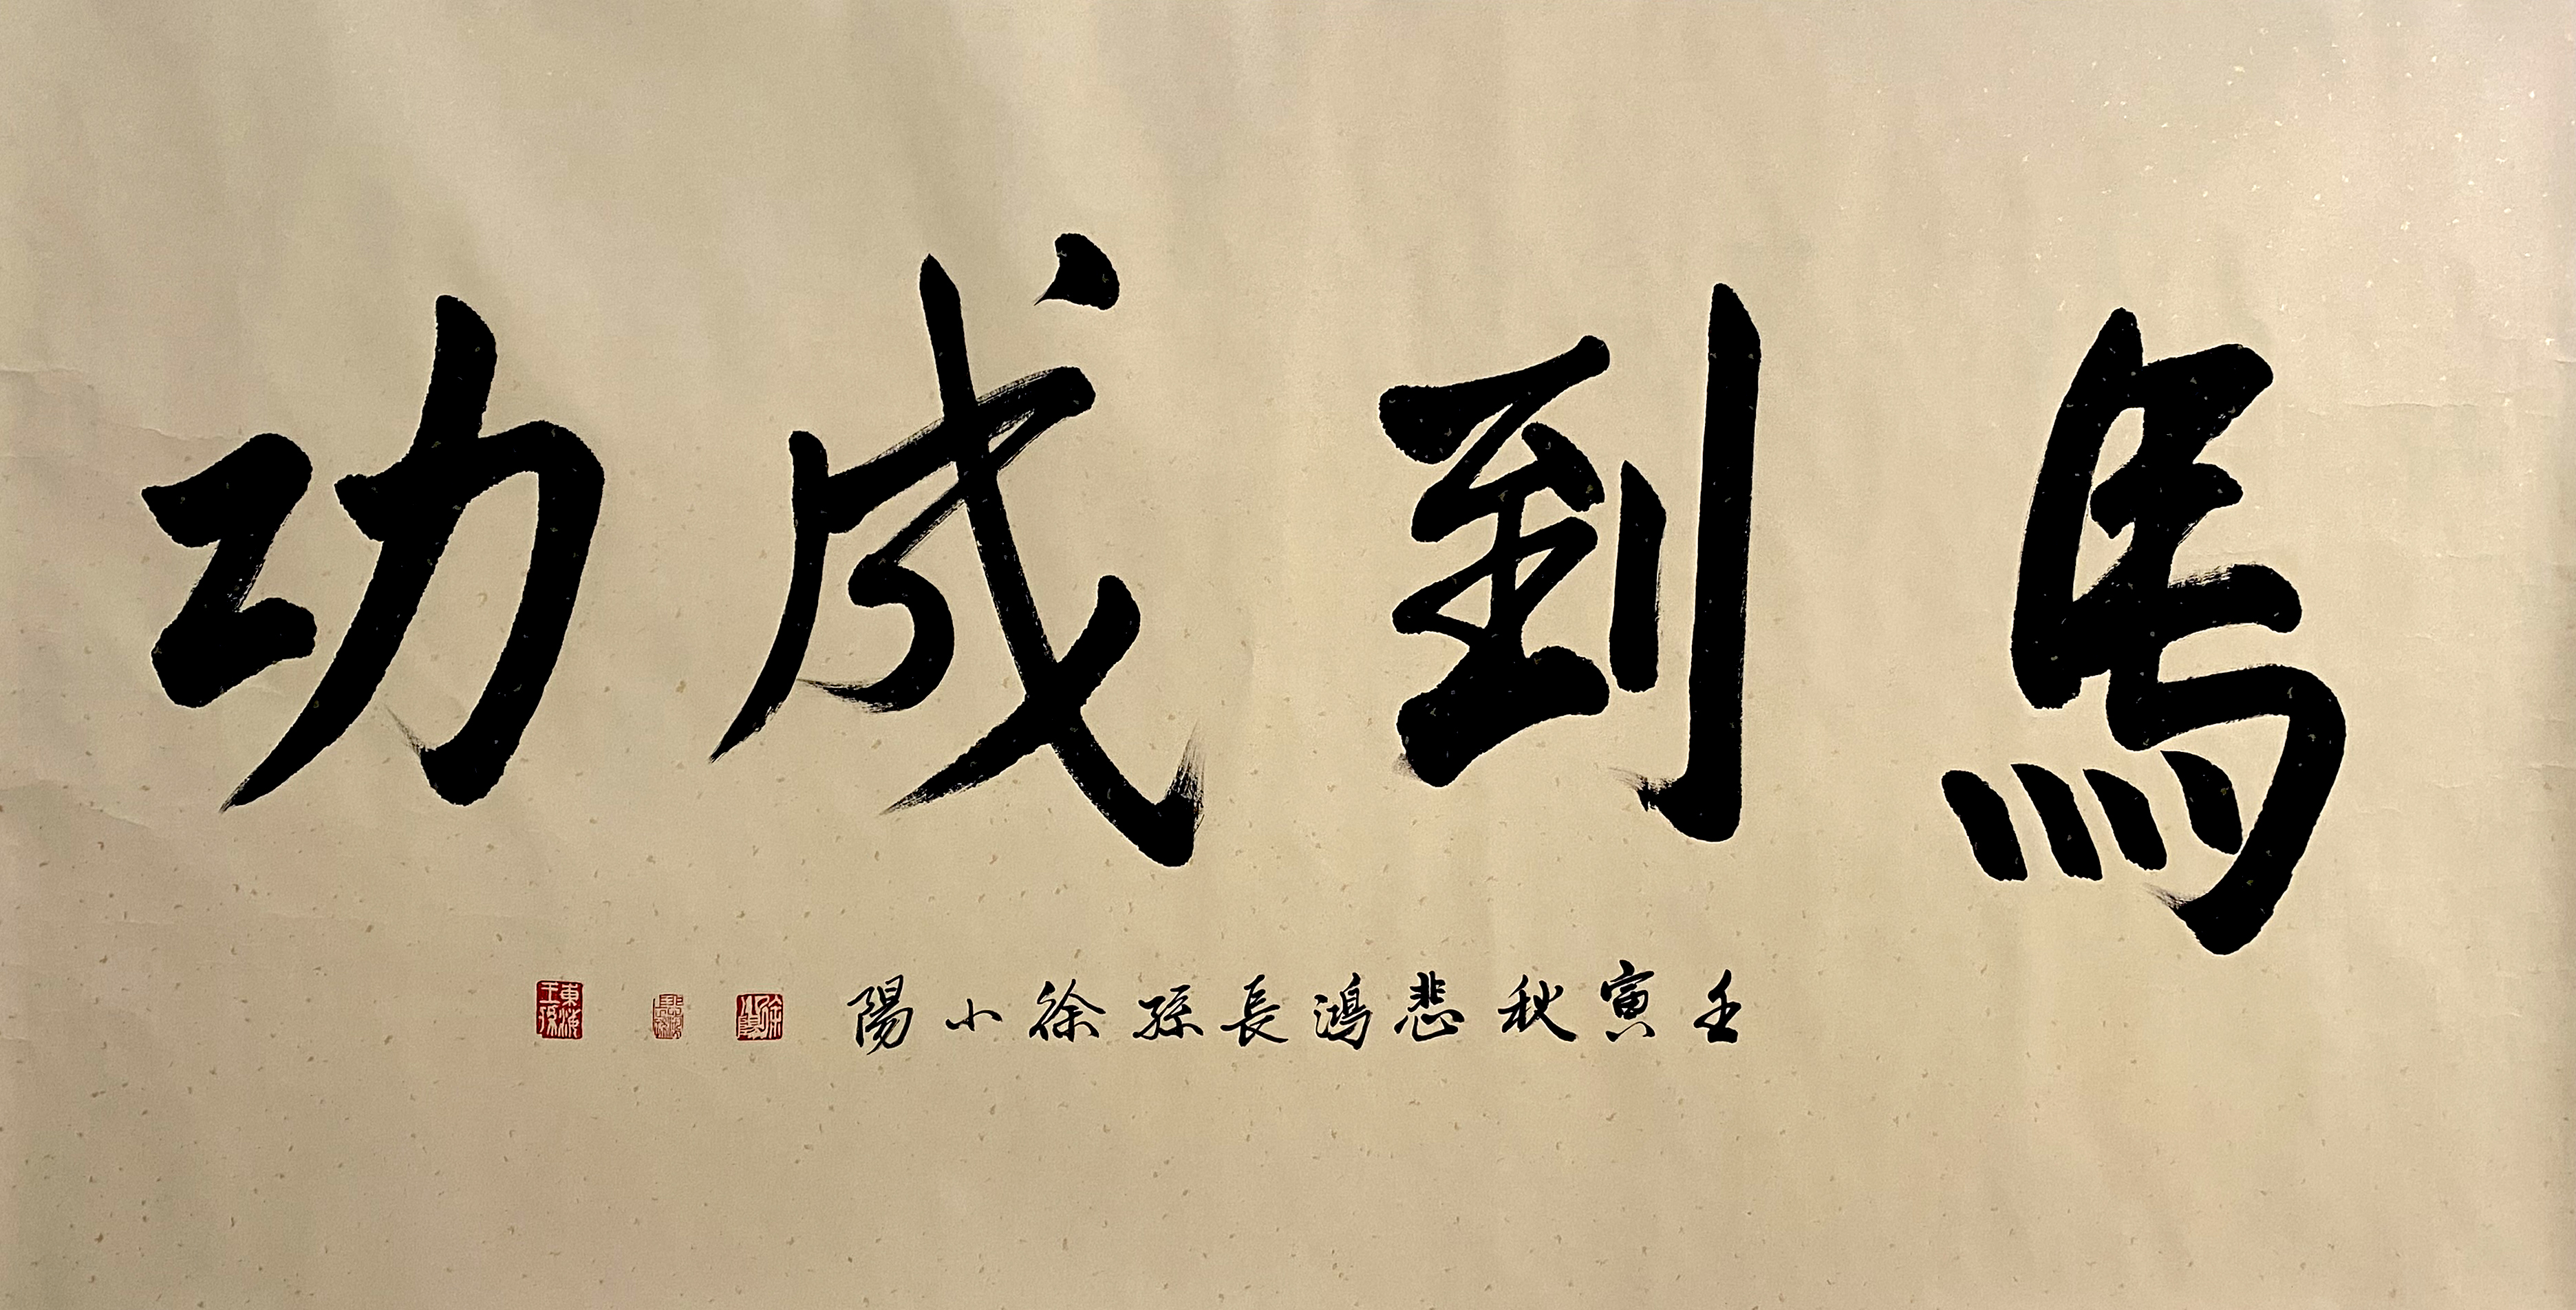 馬到成功
壬寅秋悲鴻長孫徐小陽
徐小陽
東海王孫